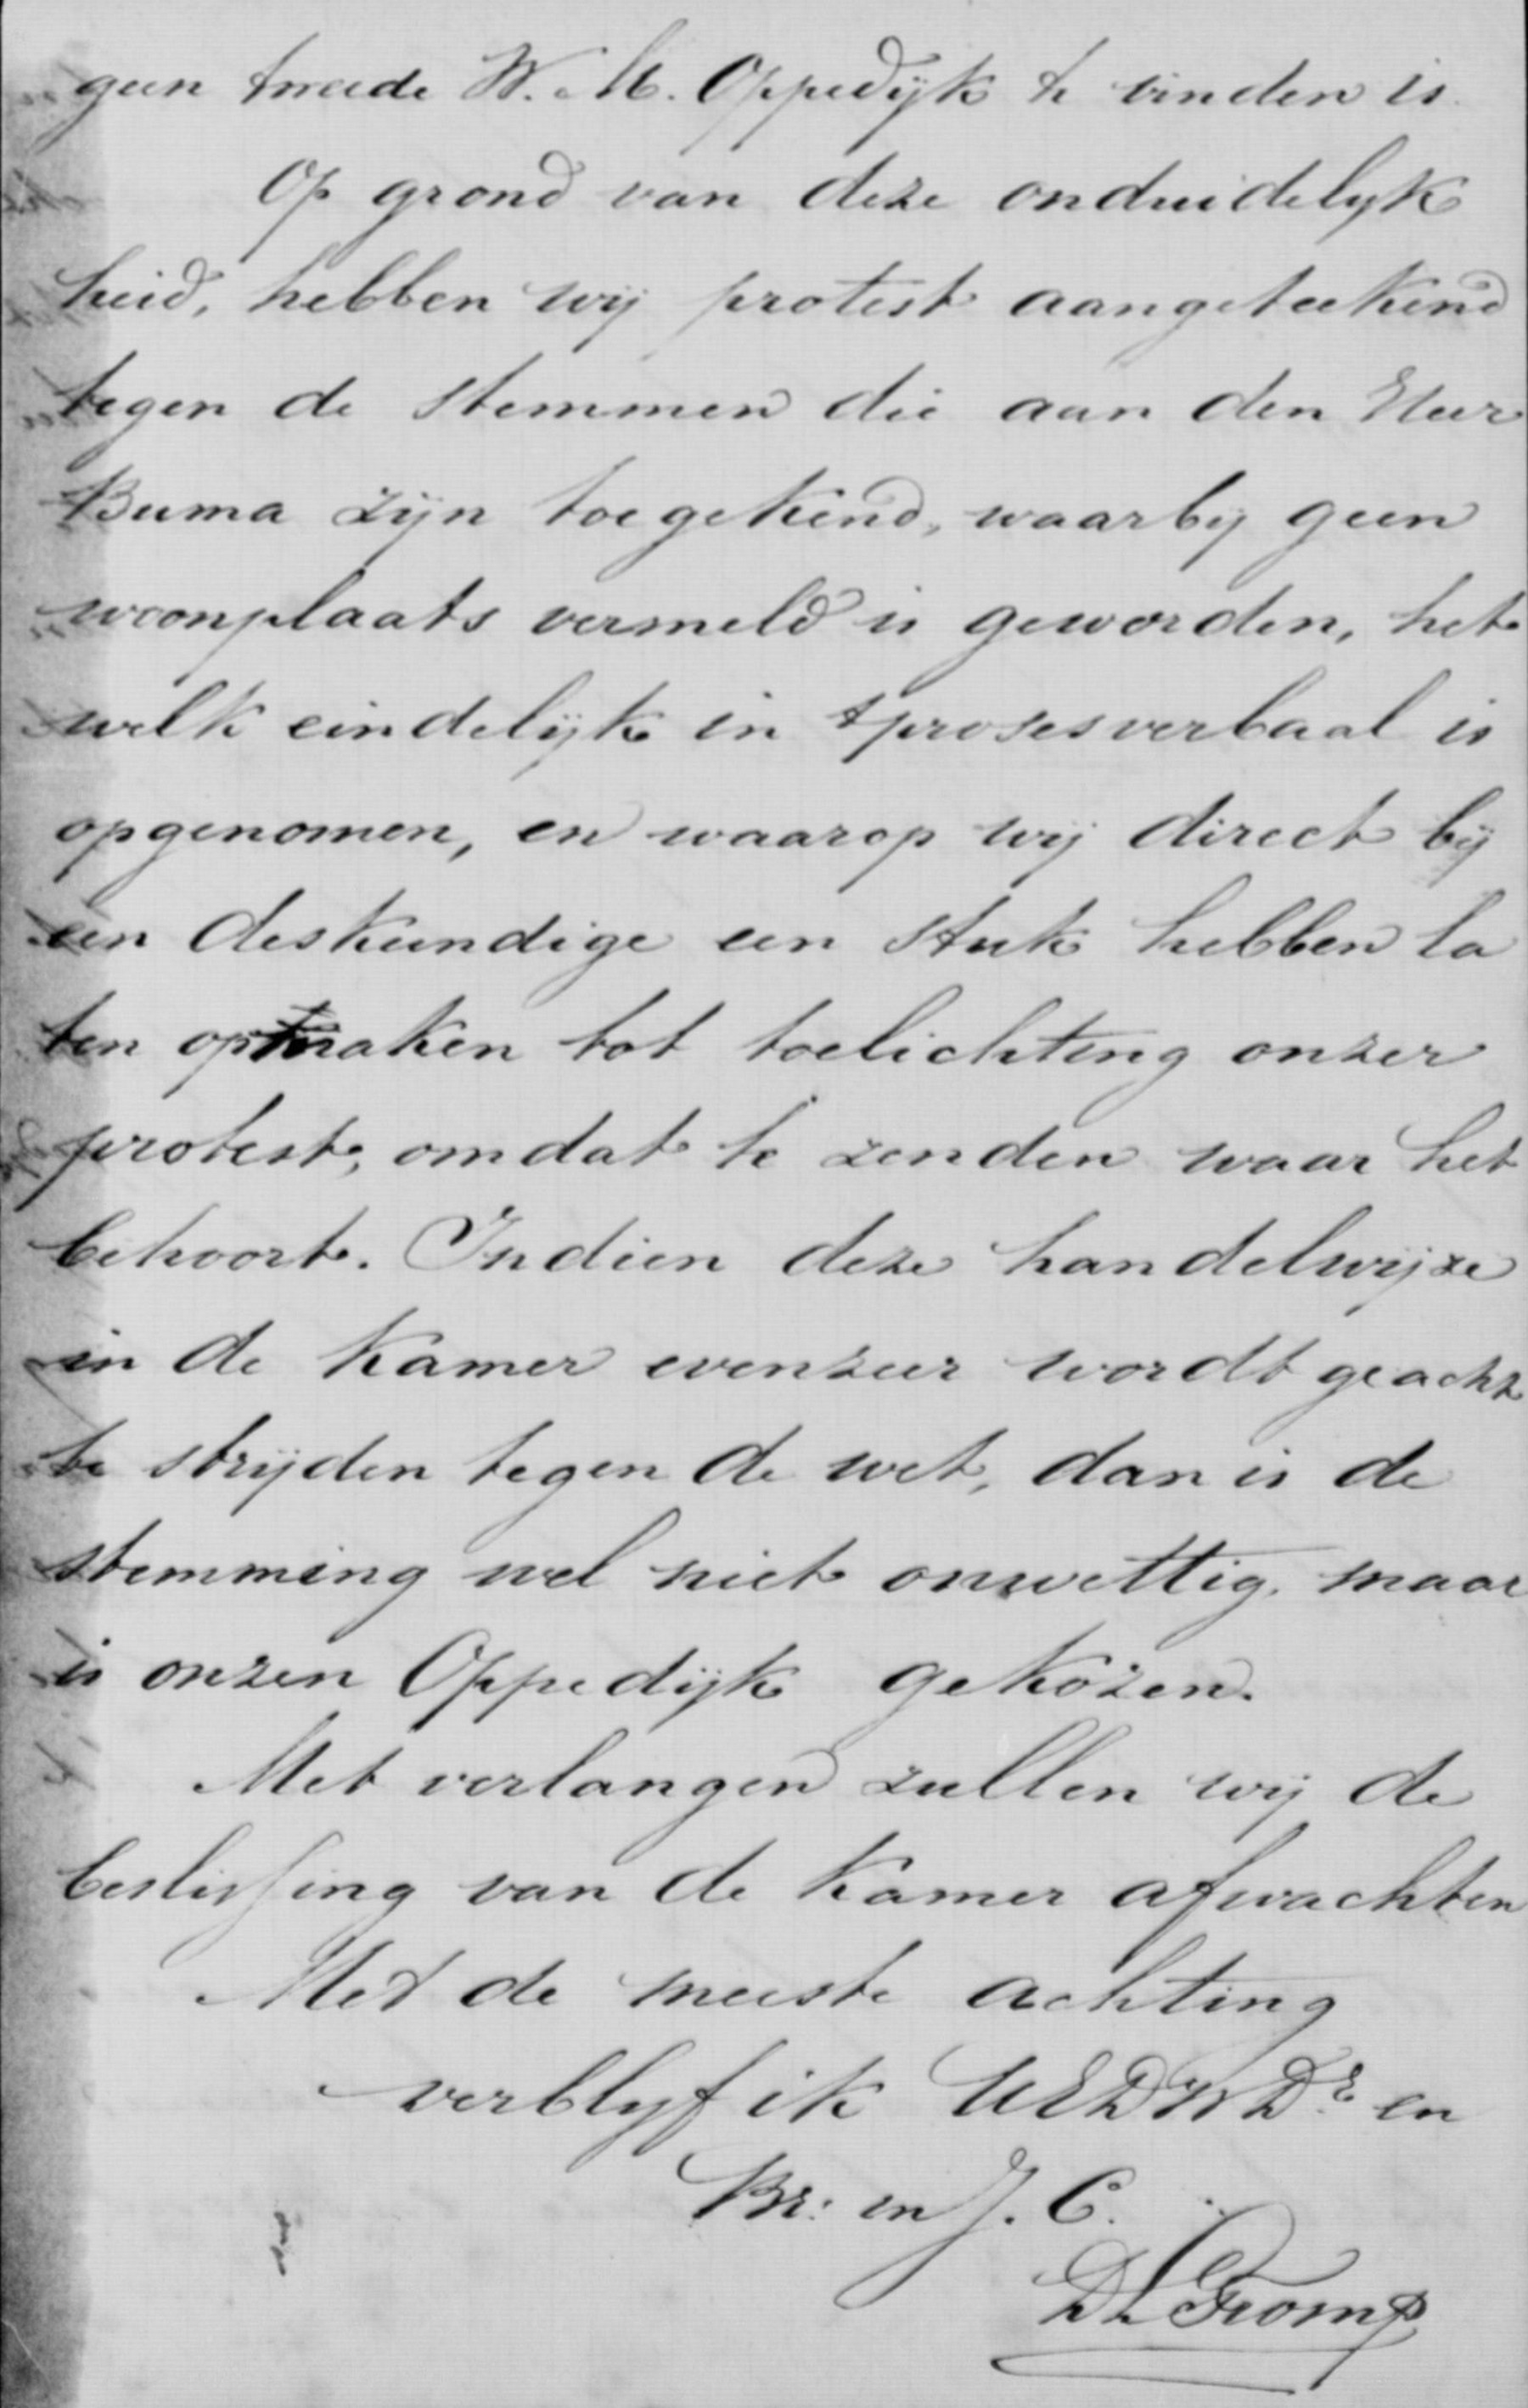 geen tweede W. M. Oppedijk te vinden is.
Op grond van deze onduidelijk
heid, hebben wij protest aangeteekend
tegen de stemmen die aan den Heer
Buma zijn toegekend, waarbij geen
woonplaats vermeld is geworden, het
welk eindelijk in t prosesverbaal is
opgenomen, en waarop wij direct bij
een deskundige een stuk hebben la
ten opmaken tot toelichting onzer
protest, omdat te zenden waar het
behoort. Indien deze handelwijze
in de Kamer evenzeer wordt geacht
te strijden tegen de wet, dan is de
stemming wel niet onwettig, maar
is onzen Oppedijk gekozen.
Met verlangen zullen wij de
beslissing van de Kamer afwachten
Met de meeste achting
verblijf ik UEDWDr en
Br: in J. C.
DL Tromp